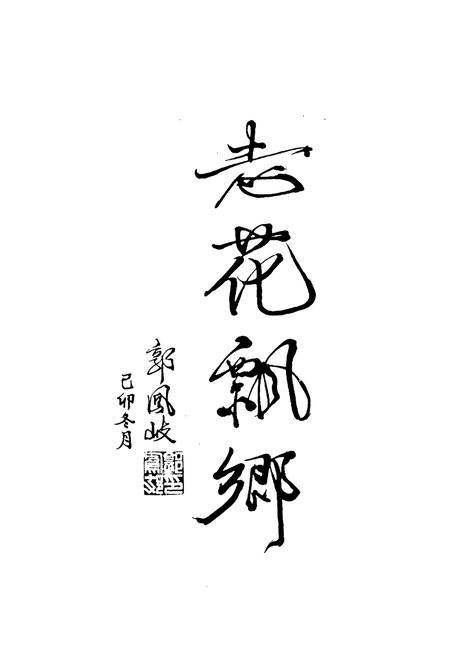 志花飄鄉
郭鳳岐
己卯冬月